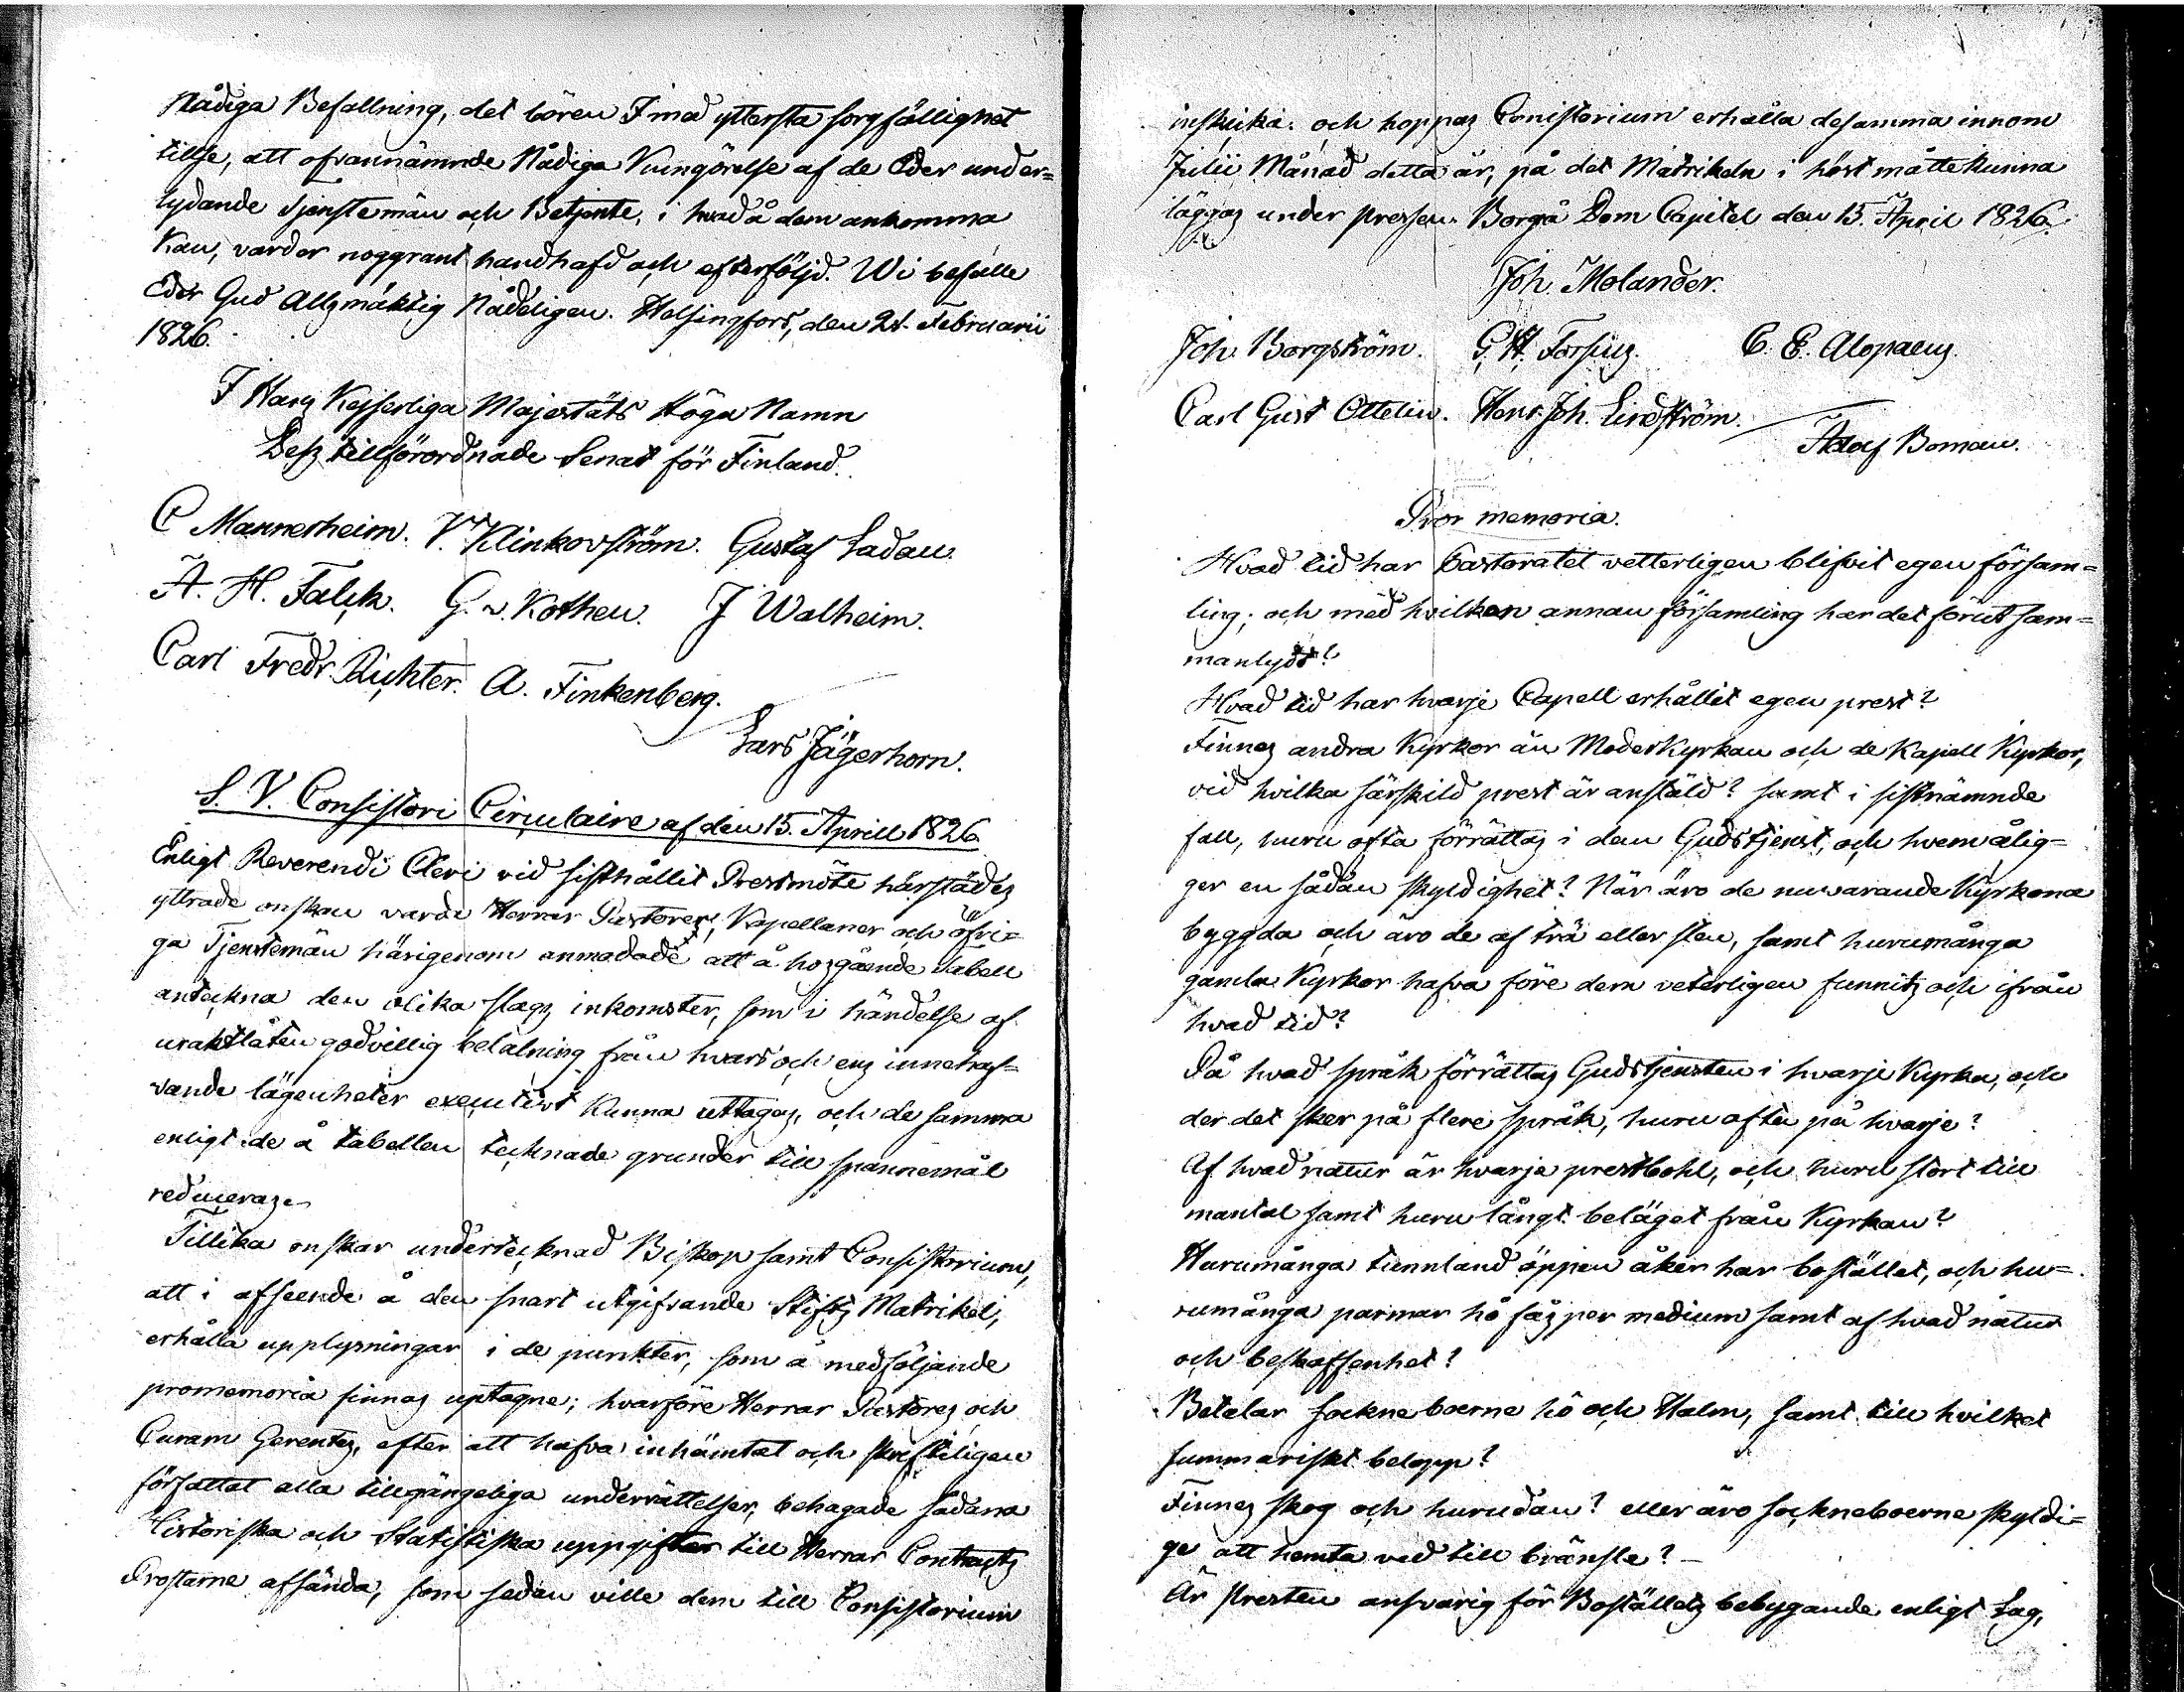 Nådiga Befallning, det bören I med yttersta sorgfällighet
tillse, att ofvannämnde Nådiga Kungörelse af de Eder under=
lydande Tjenstemän och Betjente, i hvad å dem ankomma
kan, varder noggrant handhafd och efterföljd. Wi befalle
Eder Gud Allsmäktig Nådeligen. Helsingfors, den 21. Februarii
1826.
I Hans Kejserliga Majestäts Höga Namn
Dess tillförordnade Senat för Finland.
C Mannerheim. V. Klinkovström. Gustaf Ladau.
A. H. Falck. G. v. Kothen. J Walheim.
Carl Fredr. Richter. A. Finkenberg.
Lars Jägerhorn.
S. V. Consistori Circulaire af den 15. Aprill 1826.
Enligt Reverendi Cleri vid sisthållit Prestmöte härstädes
yttrade önskan varda Herrar Pastorer, Kapellaner och öfri=
ga Tjenstemän härigenom anmodade att å hosgående Tabell
anteckna den olika slags inkomster, som i händelse af
uraktlåten godvillig betalning från hvars och ens innehaf=
vande lägenheter executivt kunna uttagas, och de samma
enligt de å tabellen tecknade grunder till spannemål
reduceras.
Tillika önskar undertecknad Biskop samt Consistorium,
att i afseende å den snart utgifvande Stifts Matrikel,
erhålla upplysningar i de punkter, som å medföljande
promemoria finnas uptagne; hvarföre Herrar Pastores och
Curam Gerentes, efter att hafva inhämtat och skriftligen
författat alla tillgängeliga underrättelser, behagade sådana
Historiska och Statistiska uppgifter till Herrar Contracts
Prostarne afsända, som sedan ville dem till Consistorium
inskicka. och hoppas Consistorium erhålla desamma innom
Julii Månad detta år, på det Matrikeln i höst måtte kunna
läggas under pressen. Borgå Dom Capitel den 15. April 1826.
Joh. Molander.
Joh. Borgström. G. H. Forsius. C. E. Alopaeus.
Carl Gust Ottelin. Henr. Joh. Lindström.
Adolf Boman.
Pro memoria.
Hvad tid har Pastoratet vetterligen blifvit egen försam=
ling; och med hvilken annan församling har det förut sam=
manlydt?
Hvad tid har hvarje Capell erhållit egen prest?
Finnes andra Kyrkor än Moderkyrkan och de Kapell Kyrkor,
vid hvilka särskild prest är anstäld? samt i sistnämnde
fall, huru ofta förrättas i den Gudstjenst, och hvem ålig=
ger en sådan skyldighet? När äro de nuvarande Kyrkona
byggda och äro de af trä eller sten, samt hurumånga
gamla Kyrkor hafva före dem veterligen funnits och ifrån
hvad tid?
På hvad språk förrättas Gudstjensten i hvarje Kyrka, och
der det sker på flere språk, huru ofta på hvarje?
Af hvad natur är hvarje prestbohl, och huru stort till
mantal samt huru långt beläget från Kyrkan?
Hurumånga tunnland öppen åker har bostället, och hu=
rumånga parmar hö fås per medium samt af hvad natur
och beskaffenhet?
Betalar sockneboerne hö och Halm, samt till hvilket
summariskt belopp?
Finnes skog och hurudan? eller äro sockneboerne skyldi=
ge att hemta ved till bränsle? –
Är Presten ansvarig för Boställets bebyggande enligt Lag,